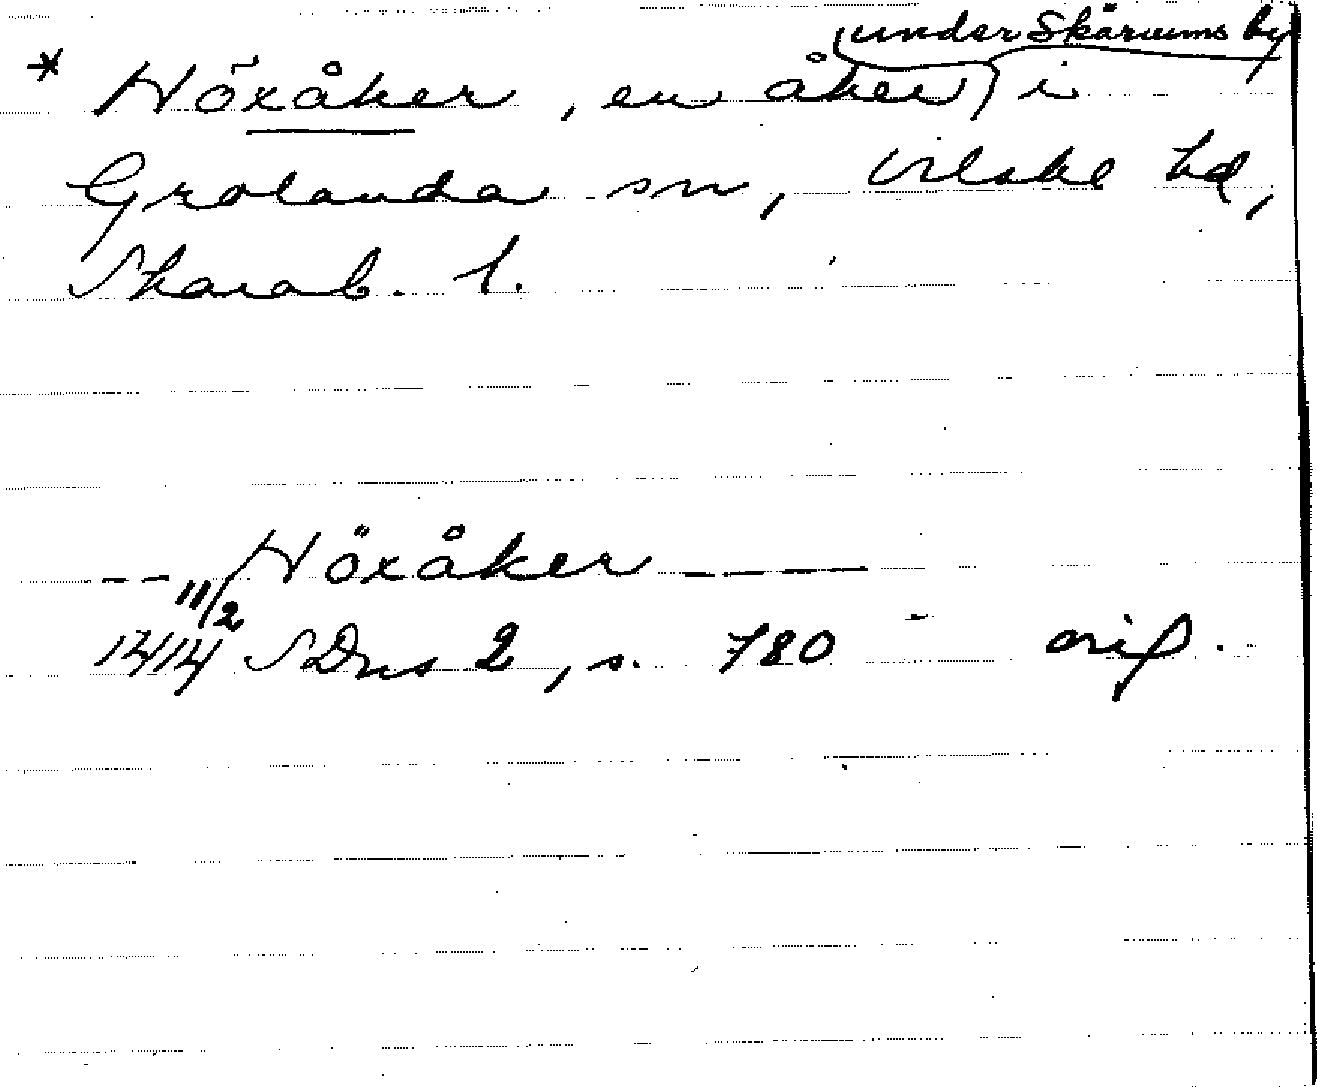 under Skärums by
* Höxåker, en åker i
Grolanda sn, Vilske hd,
Skarab. l.
-- Höxåker ---
11/2
1414 SDns 2, s. 780 - orig.